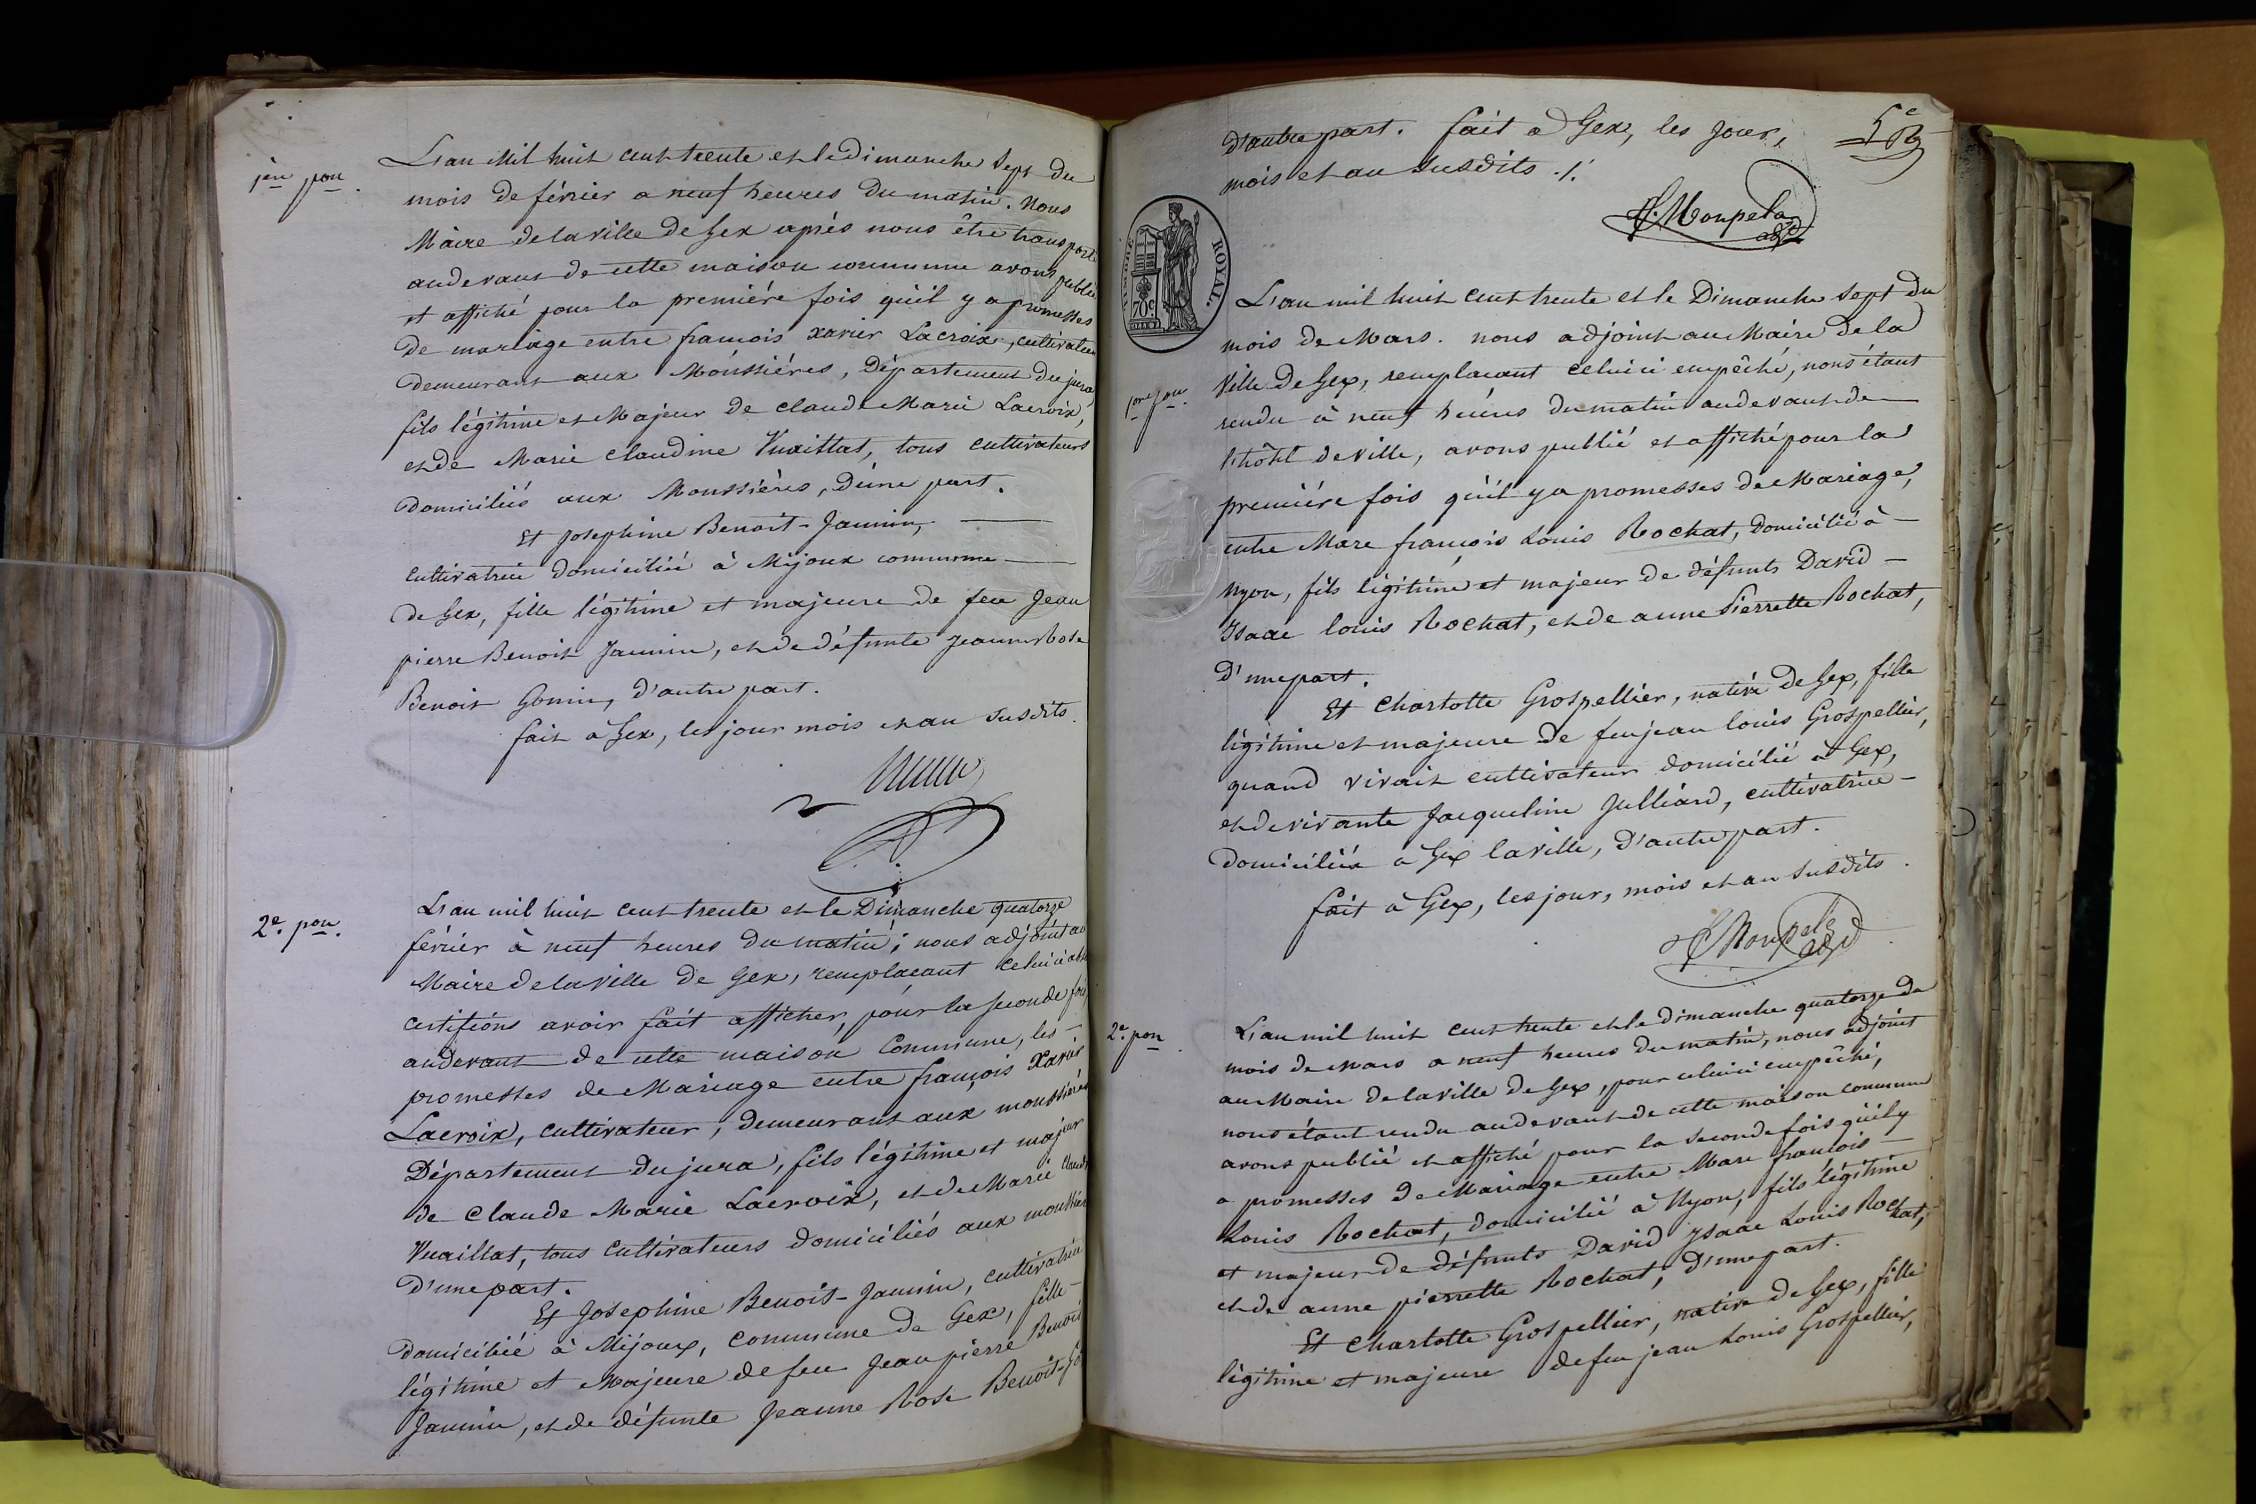 1ère pon.
L'an mil huit cent trente et le Dimanche sept du
mois de février a neuf heures du matin. Nous
Maire de la ville de Gex aprés nous être transporté
au devant de cette maison commune avons publié
et affiché pour la premiére fois qu'il y a promesses
de mariage entre françois xavier Lacroix, cultivateur
demeurant aux Moussiéres, Département du jura,
fils légitime et Majeur de Claude Marie Lacroix,
et de Marie Claudine Vuaillat, tous cultivateurs
domiciliés aux Moussiéres, d'une part.
Et Josephine Benoit-Jannin,
Cultivatrice domiciliée à Mijoux commune
de Gex, fille légitime et majeure de feu Jean
pierre Benoit Jannin, et de défunte Jeanne Rose
Benoit Gonin, d'autre part.
fait à Gex, les jour mois et an susdits.
2e. pon.
L'an mil huit cent trente et le Dimanche quatorze
février à neuf heures du matin; nous adjoint au
Maire de la ville de Gex, remplaçant celui ci
certifions avoir fait afficher, pour la seconde fois
au devant de cette maison Commune, les
promesses de Mariage entre françois Xavier
Lacroix, cultivateur, demeurant aux moussiéres
Département du jura, fils légitime et majeur
de Claude Marie Lacroix, et de Marie Claudine
Vuaillat, tous Cultivateurs domiciliés aux moussiéres
D'une part.
Et Josephine Benoit-Jannin, cultivatrice
domiciliée à Mijoux, Commune de Gex, fille
légitime et Majeure de feu Jean pierre Benoit
Jannin, et de défunte Jeanne Rose Benoit-Go
d'autre part. fait a Gex, les jour,
mois et an susdits ./.
TIMBRE ROYAL.
70c
1ere pon.
L'an mil huit cent trente et le Dimanche sept du
mois de Mars. nous adjoint au Maire de la
Ville de Gex, remplacant celui ci empêché, nous étant
rendu à neuf heures du matin au devant de
l'hôtel de ville, avons publié et affiché pour la
premiére fois qu'il y a promesses de Mariage,
entre Marc françois Louis Rochat, Domicilié à
Nyon, fils légitime et majeur de défunts David
Isaac louis Rochat, et de anne Pierrette Rochat,
D'une part.
Et Charlotte Grospellier, native de Gex, fille
légitime et majeure de feu jean louis Grospellier,
quand vivait cultivateur domicilié à Gex,
et de vivante Jacqueline Julliard, cultivatrice
domiciliée a Gex la ville, D'autre part.
fait à Gex, les jour, mois et an susdits.
2e. pon
L'an mil huit cent trente et le dimanche quatorze du
mois de mars a neuf heures du matin, nous adjoint
au Maire de la ville de Gex, pour celui ci empêché,
nous étant rendu au devant de cette maison commune
avons publié et affiché pour la seconde fois qu'il y
a promesses de Mariage entre Marc françois
Louis Rochat, domicilié à Nyon, fils légitime
et majeur de défunts David Ysaac Louis Rochat,
et de anne pierrette Rochat, d'une part.
Et Charlotte Grospellier, native de Gex, fille
légitime et majeure de feu jean Louis Grospellier,